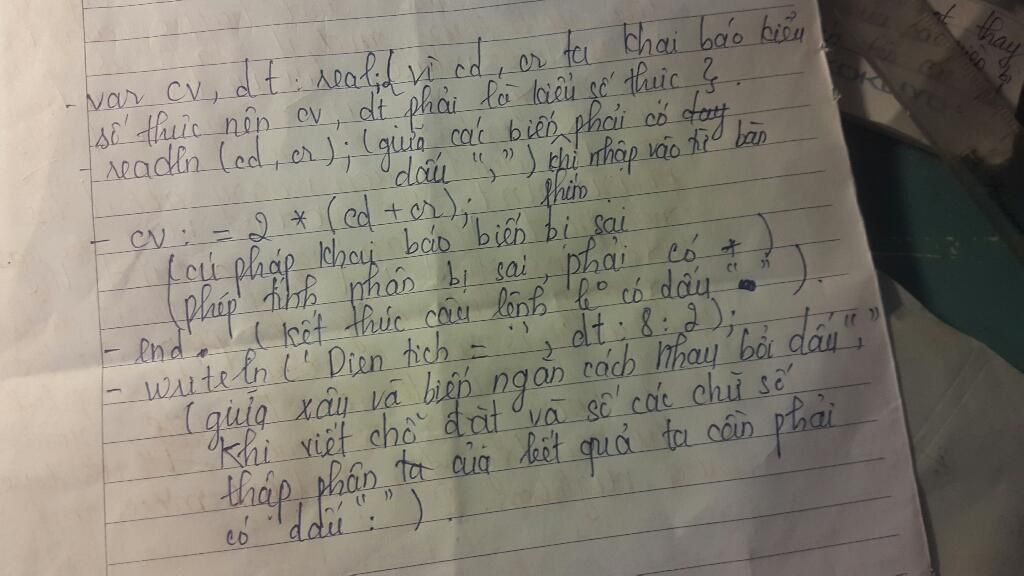 - var cv, dt : real; { vì cd, cr ta khai báo kiểu
số thực nên cv, dt phải là kiểu số thực }.
- readln (cd, cr); (giữa các biến phải có
dấu “,”) khi nhập vào từ bàn
phím
- cv : = 2 * (cd + cr);
(cú pháp khai báo biến bị sai
(phép tính phân bị sai, phải có * )
- end. (kết thúc câu lệnh có dấu “.” ).
- writeln (' Dien tich = ', dt : 8 : 2);
(giữa xâu và biến ngăn cách nhay bởi dấu “,”
khi viết chỗ đặt và số các chữ số
thập phân ta của kết quả ta cần phải
có dấu “:” ).
thay